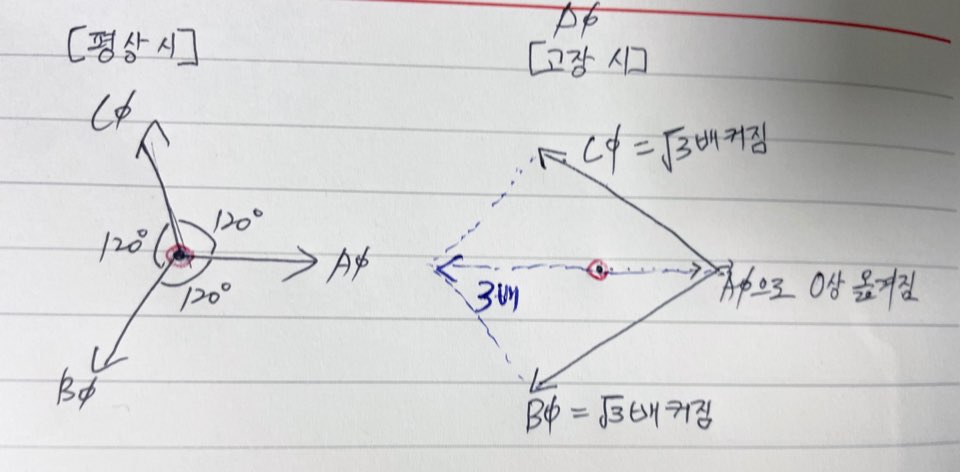 [평상 시]
Cφ
120°
120°
120°
Aφ
Bφ
Aφ
[고장 시]
Cφ = √3배 커짐
3배
Aφ으로 0상 옮겨짐
Bφ = √3배 커짐